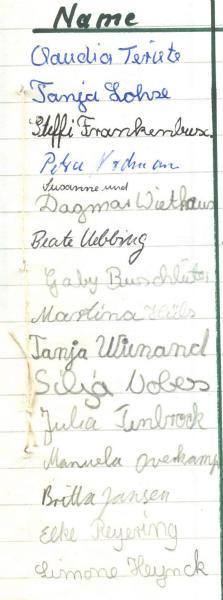 Name
Claudia Teriete
Tanja Lohse
Steffi Frankenbusc
Petra Erdmann
Susanne und
Dagmar Wiethaus
Beate Uebbing
Gaby Buschlüter
Martina Hüls
Tanja Wienand
Silja Vobess
Julia Tenbrock
Manuela Overkamp
Britta Jansen
Elke Reyering
Simone Heynck